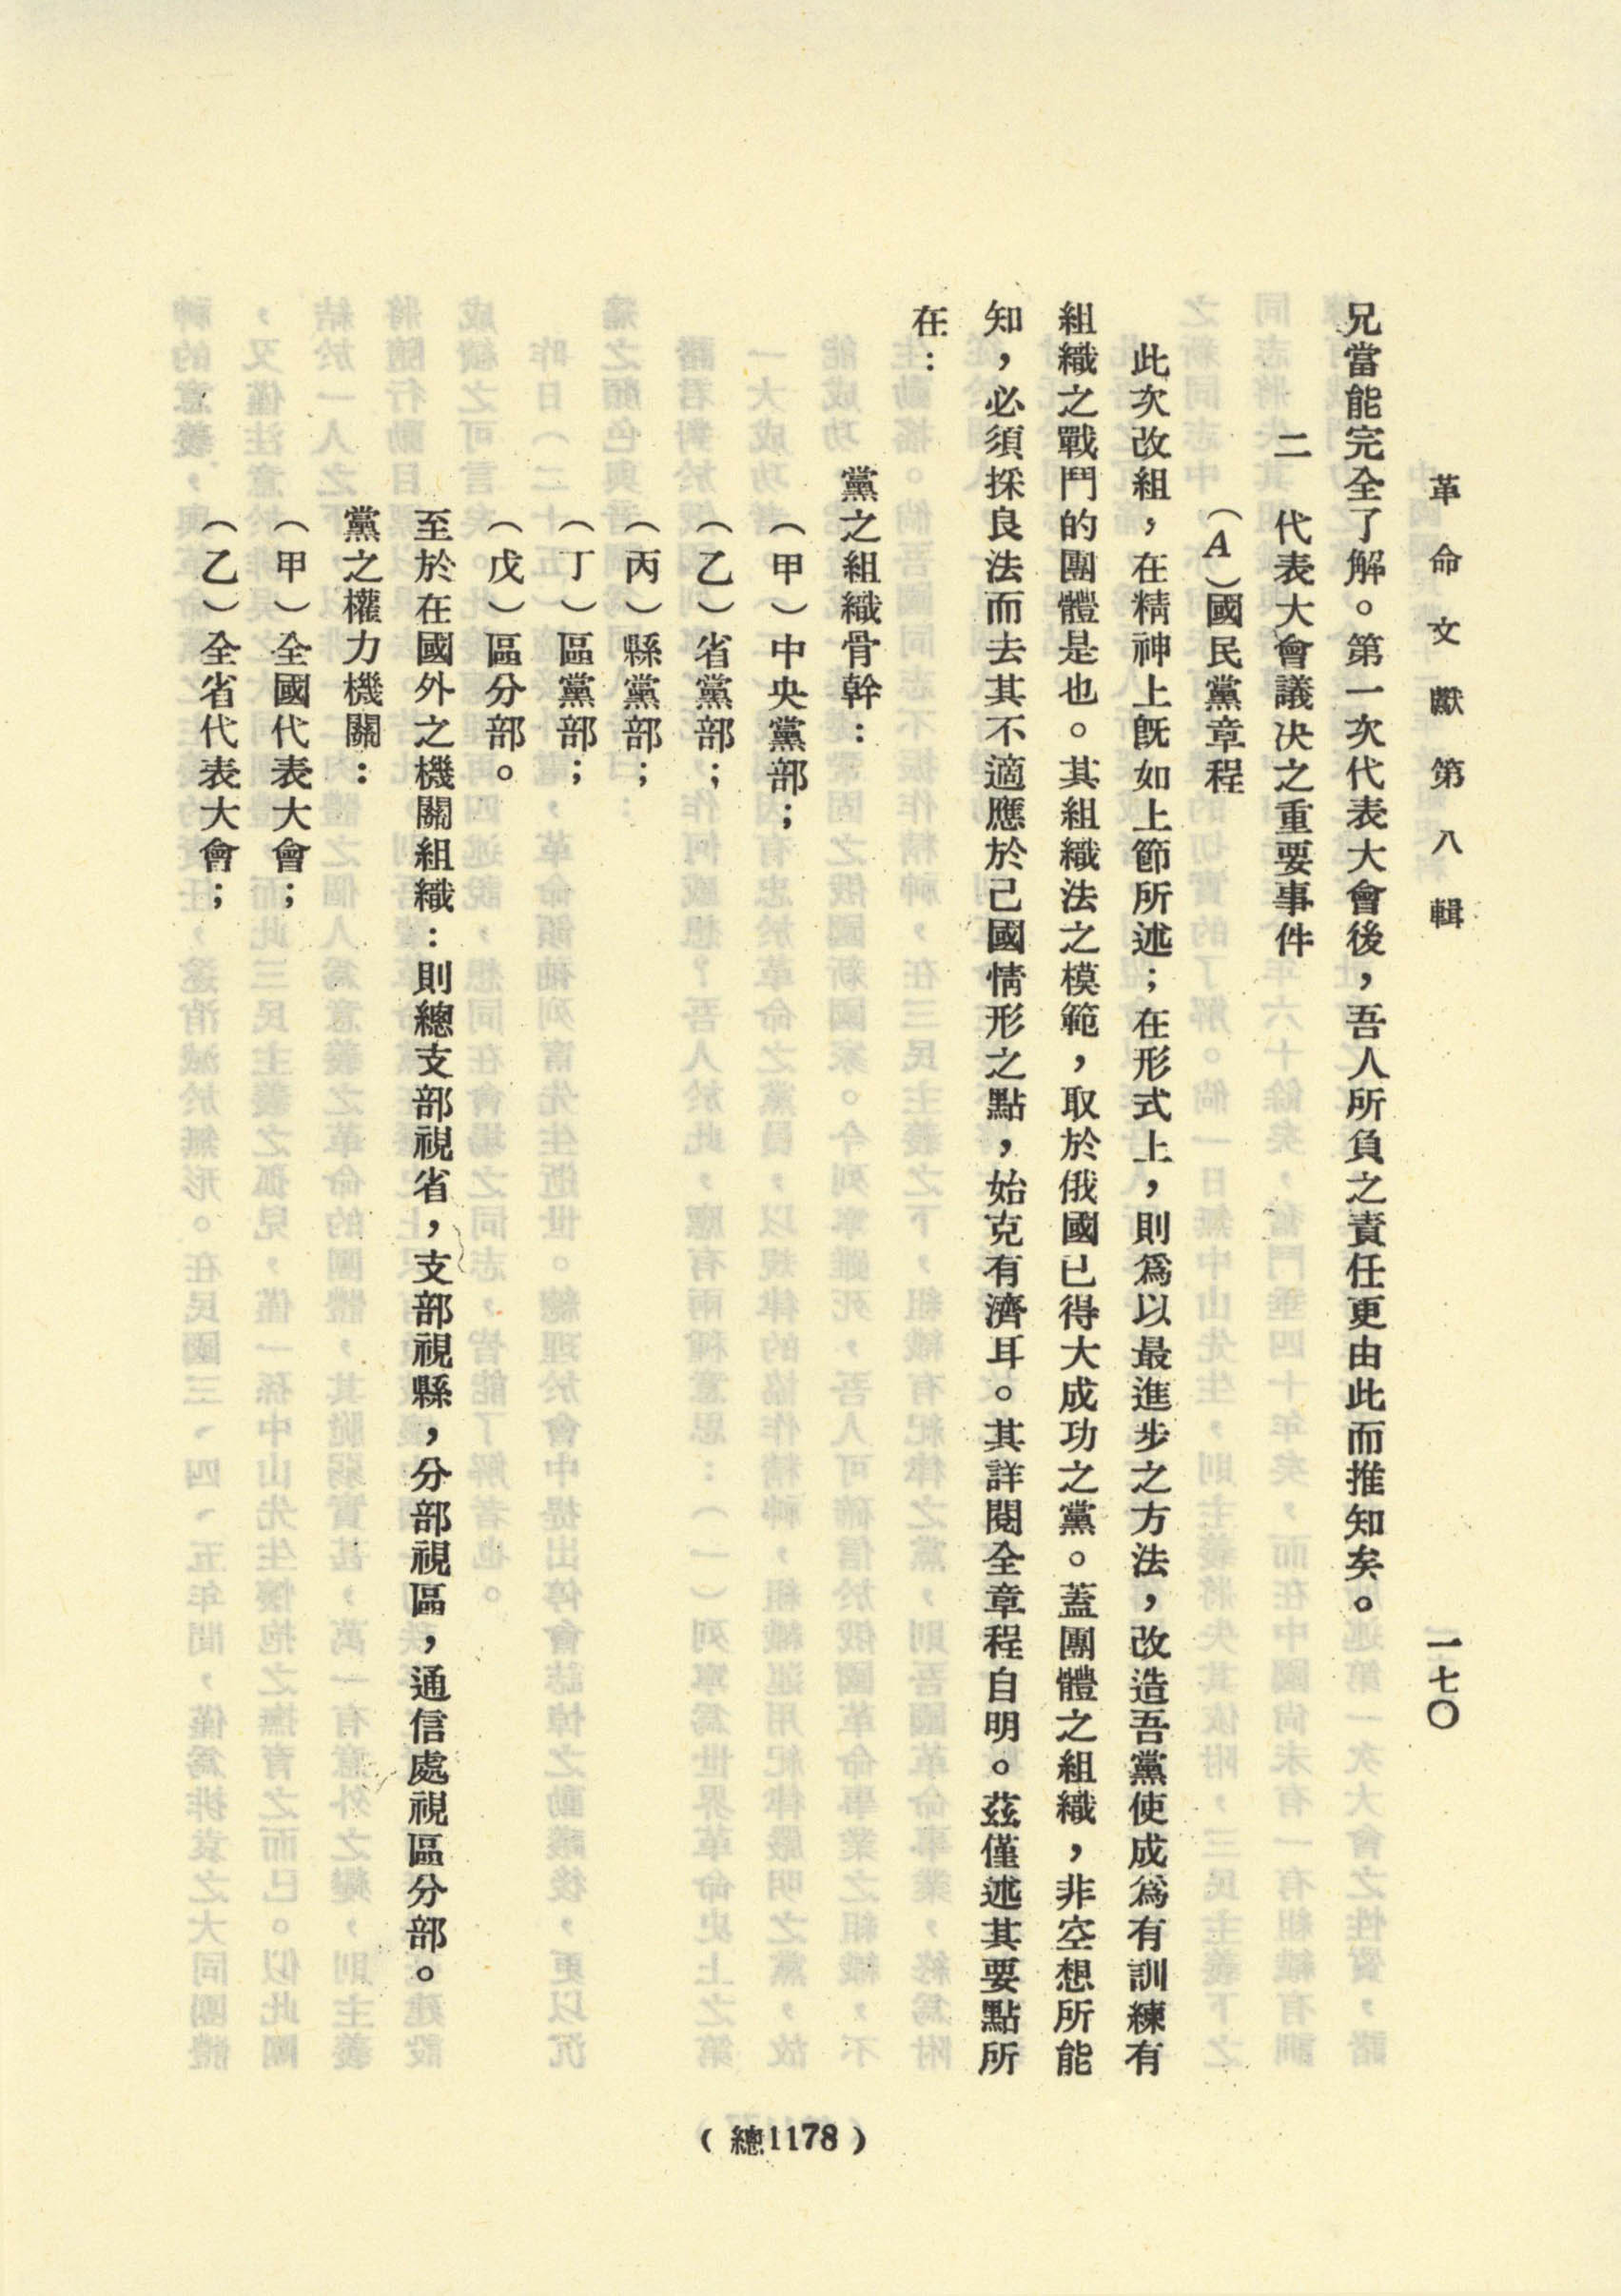 革命文獻第八輯
一七〇
兄當能完全了解。第一次代表大會後，吾人所負之責任更由此而推知矣。
二　代表大會議決之重要事件
（A）國民黨章程
此次改組，在精神上既如上節所述；在形式上，則爲以最進步之方法，改造吾黨使成爲有訓練有
組織之戰鬥的團體是也。其組織法之模範，取於俄國已得大成功之黨。蓋團體之組織，非空想所能
知，必須採良法而去其不適應於己國情形之點，始克有濟耳。其詳閱全章程自明。茲僅述其要點所
在：
黨之組織骨幹：
（甲）中央黨部；
（乙）省黨部；
（丙）縣黨部；
（丁）區黨部；
（戊）區分部。
至於在國外之機關組織：則總支部視省，支部視縣，分部視區，通信處視區分部。
黨之權力機關：
（甲）全國代表大會；
（乙）全省代表大會；
（總1178）